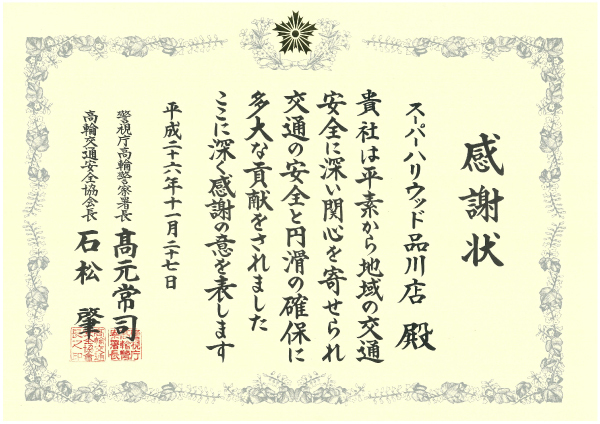 感謝状
スーパーハリウッド品川店 殿
貴社は平素から地域の交通
安全に深い関心を寄せられ
交通の安全と円滑の確保に
多大な貢献をされました
ここに深く感謝の意を表します
平成二十六年十一月二十七日
警視庁高輪警察署長 髙元常司
高輪交通安全協会長 石松 肇